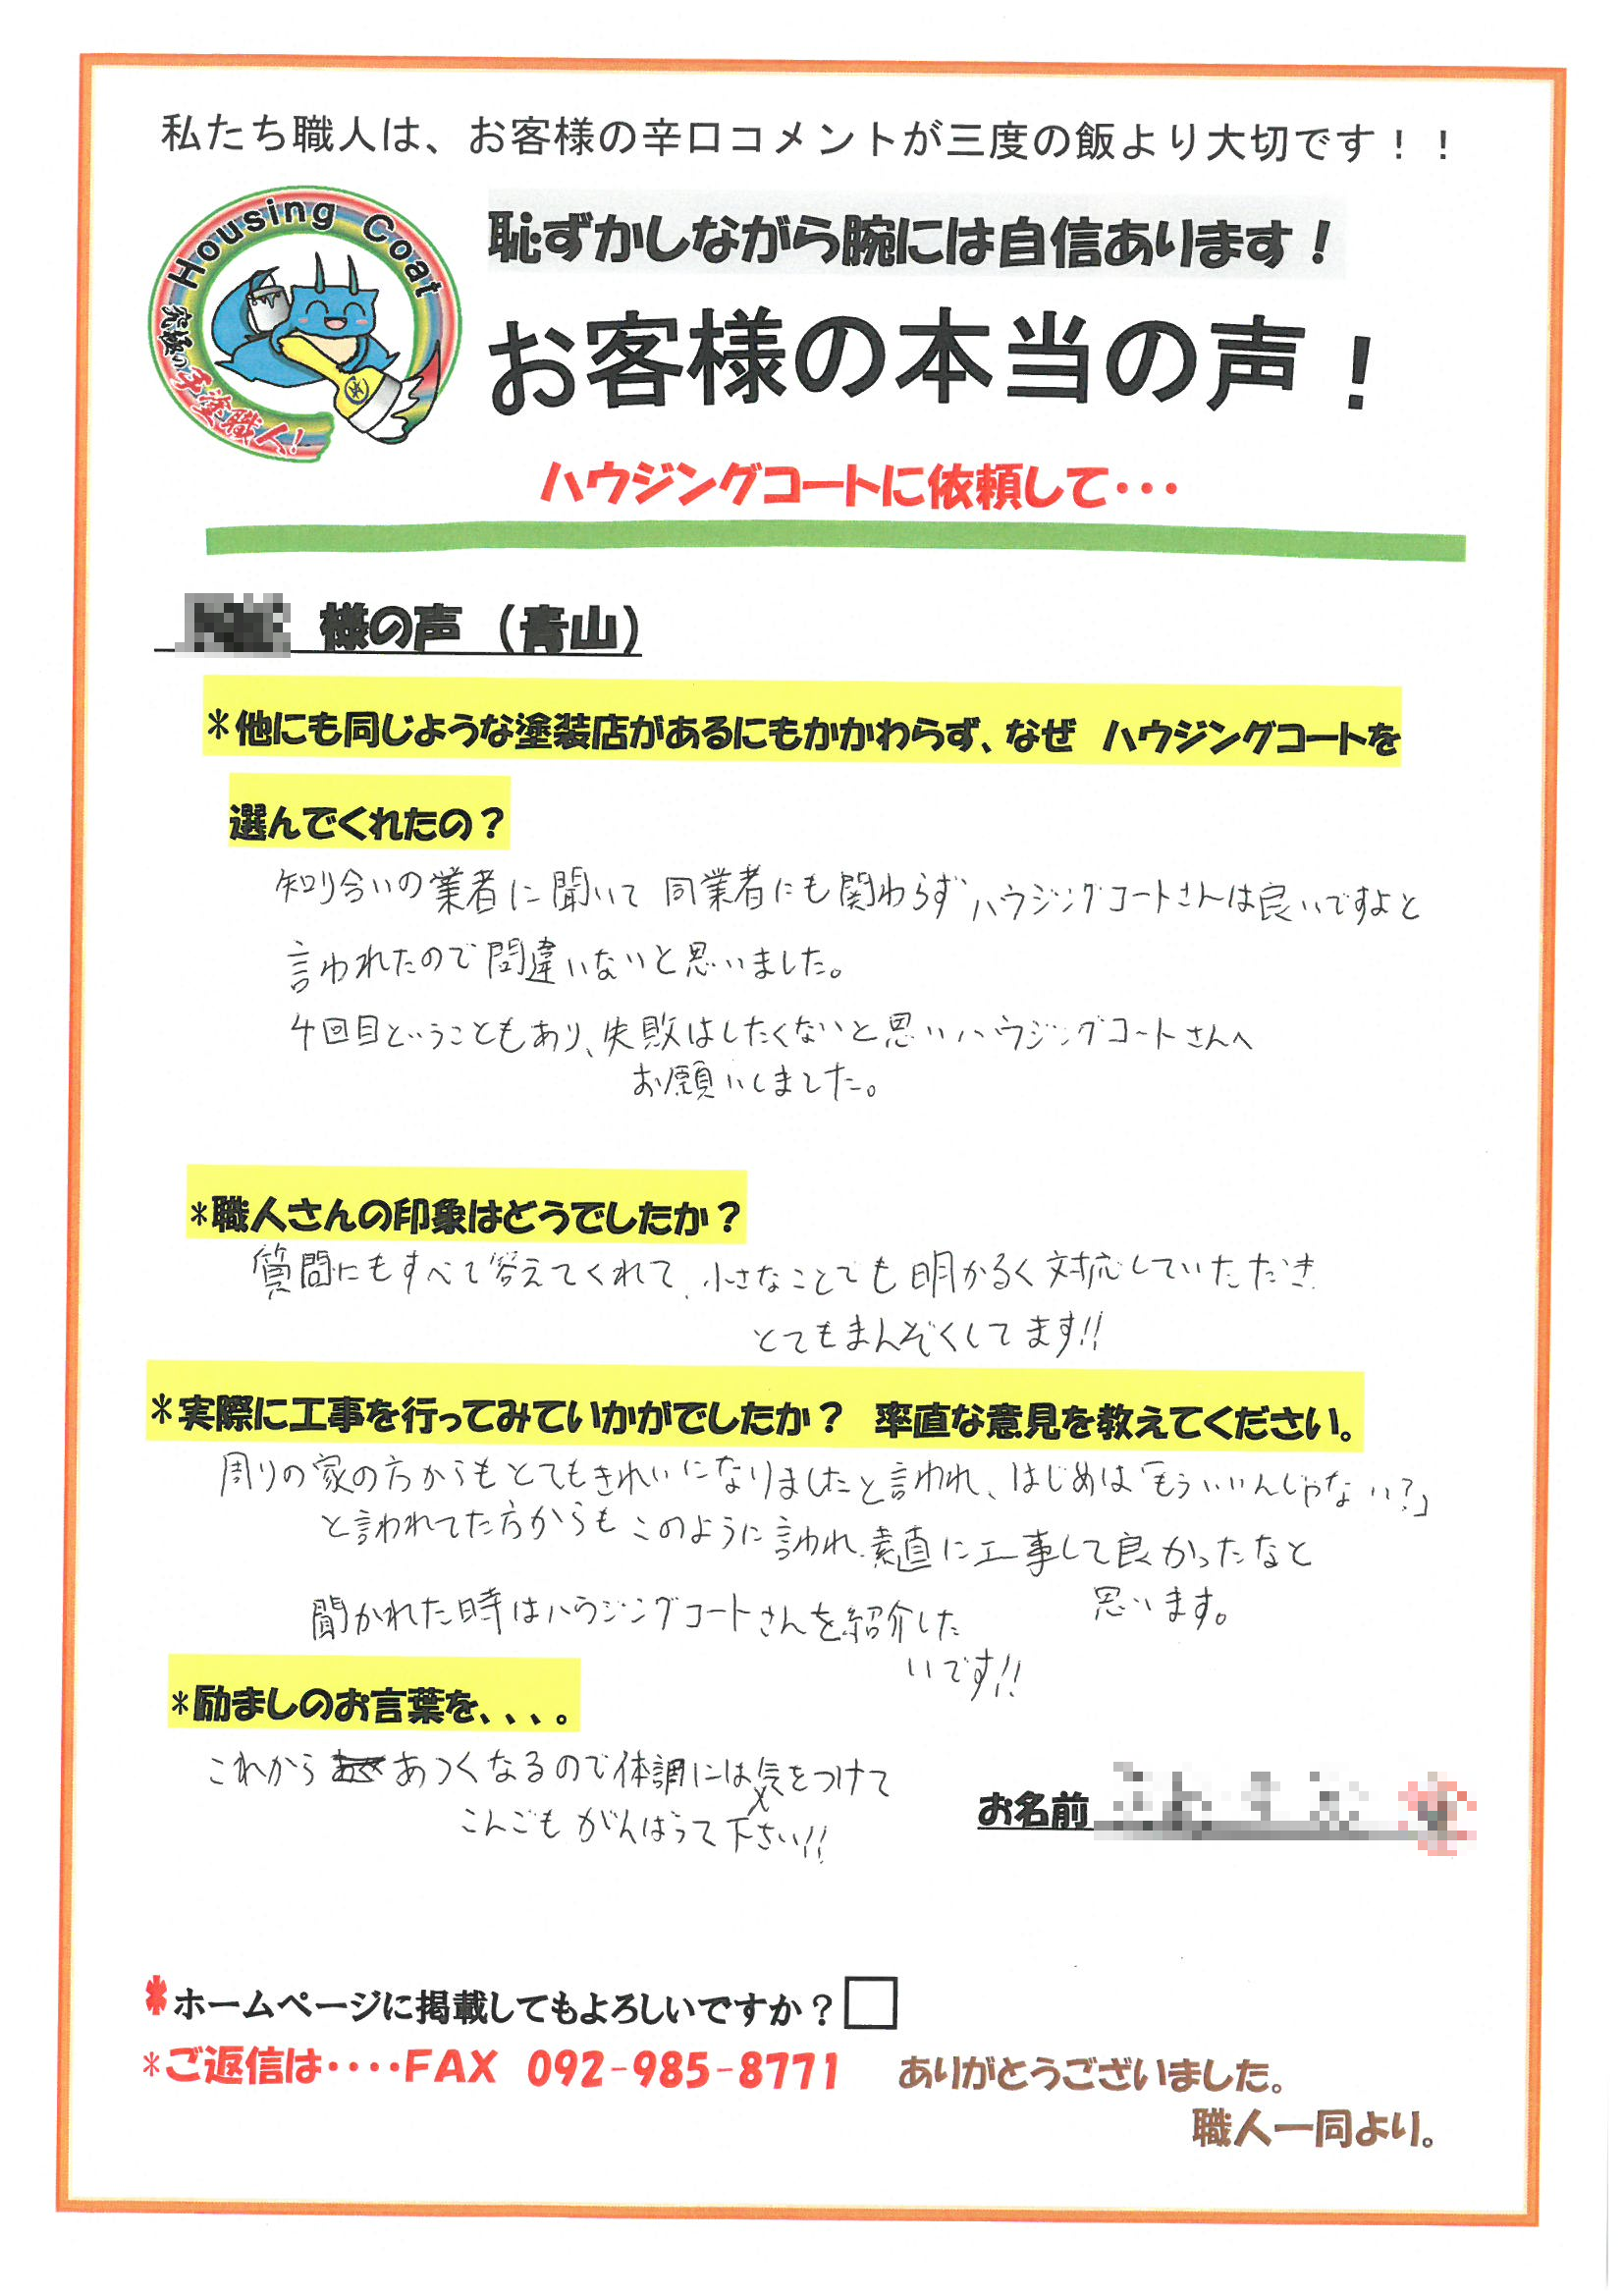 私たち職人は、お客様の辛口コメントが三度の飯より大切です！！
Housing Coat
究極の手塗職人！
恥ずかしながら腕には自信あります！
お客様の本当の声！
ハウジングコートに依頼して・・・
様の声（青山）
＊他にも同じような塗装店があるにもかかわらず、なぜ　ハウジングコートを
選んでくれたの？
知り合いの業者に聞いて 同業者にも関わらずハウジングコートさんは良いですよと
言われたので間違いないと思いました。
4回目ということもあり、失敗はしたくないと思いハウジングコートさんへ
お願いしました。
＊職人さんの印象はどうでしたか？
質問にもすべて答えてくれて、小さなことでも明かるく対応していただき
とてもまんぞくしてます!!
＊実際に工事を行ってみていかがでしたか？　率直な意見を教えてください。
周りの家の方からもとてもきれいになりましたと言われ、はじめは「もういいんじゃない？」
と言われてた方からもこのように言われ、素直に工事して良かったなと
思います。
聞かれた時はハウジングコートさんを紹介した
いです!!
＊励ましのお言葉を、、、。
これから あつくなるので体調には気をつけて
こんごもがんばって下さい!!
お名前
＊ホームページに掲載してもよろしいですか？
＊ご返信は・・・・ＦＡＸ　092-985-8771　ありがとうございました。
職人一同より。